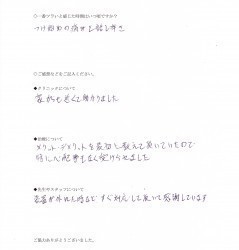 ①一番ツラいと感じた時期はいつ頃ですか?
つけ始めの痛みと話し辛さ
◎ご感想などをご記入ください。
◆クリニックについて
家からも近くて助かりました
◆治療について
メリット・デメリットを最初に教えて頂いていたので
特に心配事もなく受けられました
◆先生やスタッフについて
装置が外れた時など すぐ対応して頂いて感謝しています
ご協力ありがとうございました。